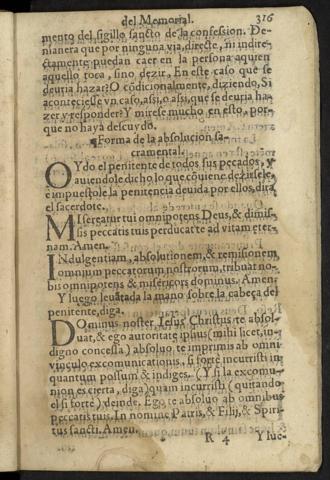 del Memorial. 316
mento del sigillo sancto de la confession. De-
manera que por ninguna via, directe, ni indire-
ctamente puedan caer en la persona a quien
aquello toca, sino dezir, En este caso que se
deuria hazar? O cōdicionalmente, diziendo, Si
aconteciesse vn caso, assi, o assi, que se deuria ha-
zer y responder? Y mirese mucho en esto, por-
que no haya descuydo.
¶Forma de la absolucion sa-
cramental.
OYdo el penitente de todos sus pecados, y
auiendole dicho lo que cōuiene dezirsele,
e impuestole la penitencia deuida por ellos, dira
el sacerdote.
MIsereatur tui omnipotens Deus, & dimis-
sis peccatis tuis perducat te ad vitam eter-
nam. Amen.
INdulgentiam, absolutionem, & remisionem
omnium peccatorum nostrorum, tribuat no-
bis omnipotens & misericors dominus. Amen.
Y luego leuātada la mano sobre la cabeça del
penitente, diga.
DOminus noster Iesus Christus te absol-
uat, & ego autoritate ipsius (mihi licet, in-
digno concessa) absoluo te imprimis ab omni
vinculo excomunicationis, si forte incurristi in
quantum possum & indiges. (Y si la excomu-
nion es cierta, diga) quam incurristi (quitando
el si forte) deinde, Ego te absoluo ab omnibus
peccatis tuis. In nomine Patris, & Filij, & Spiri-
tus sancti. Amen.
R 4 Y lue-